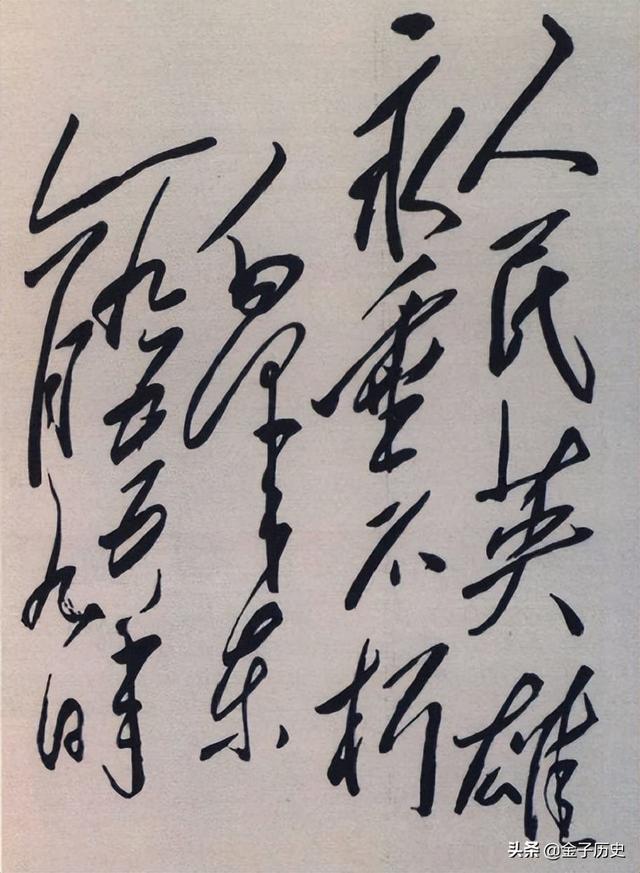 人民英雄
永垂不朽
毛泽东
一九五五年
六月九日
头条 @金子历史